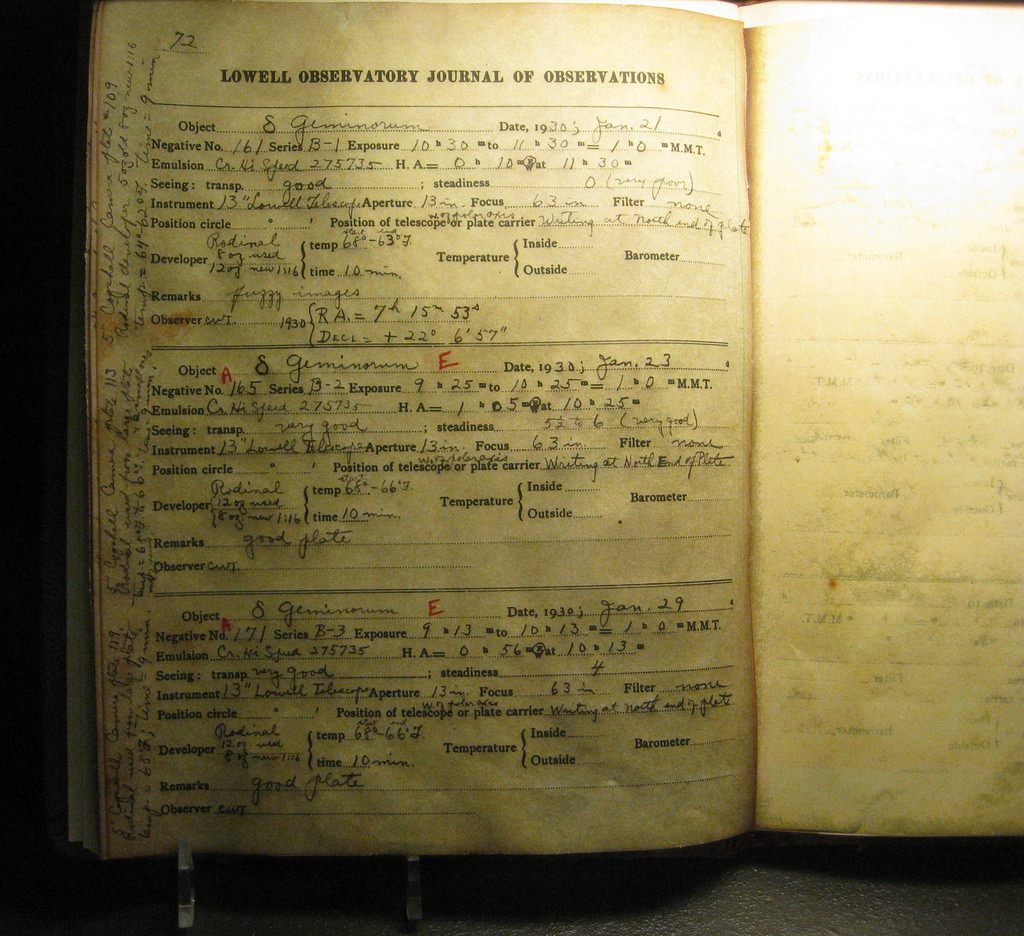 72
LOWELL OBSERVATORY JOURNAL OF OBSERVATIONS
Object δ Geminorum Date, 1930; Jan. 21
Negative No. 161 Series B-1 Exposure 10 h 30 m to 11 h 30 m = 1 h 0 m M.M.T.
Emulsion Cr. Hi Speed 275735 H. A. = 0 h 10 m E at 11 h 30 m
Seeing: transp. good ; steadiness 0 (very poor)
Instrument 13" Lowell Telescope Aperture 13 in. Focus 63 in. Filter none
w. of polar axis
Position circle ° ' Position of telescope or plate carrier Writing at North end of plate
Developer Rodinal 8 oz used 12 oz new 1:16 { temp 68° - 63° F. Temperature { Inside Barometer
time 10 min. Outside
Remarks fuzzy images
Observer CWT 1930 { R.A. = 7h 15m 53s
Decl = + 22° 6' 57"
Object δ Geminorum E Date, 1930; Jan. 23
A
Negative No. 165 Series B-2 Exposure 9 h 25 m to 10 h 25 m = 1 h 0 m M.M.T.
Emulsion Cr. Hi Speed 275735 H. A. = 1 h 05 m at 10 h 25 m
Seeing: transp. very good ; steadiness to 6 (very good)
Instrument 13" Lowell Telescope Aperture 13 in. Focus 63 in. Filter none
w. of polar axis
Position circle ° ' Position of telescope or plate carrier Writing at North End of Plate
Developer Rodinal 12 oz used 8 oz new 1:16 { temp 68° - 66° F. Temperature { Inside Barometer
time 10 min. Outside
Remarks good plate
Observer CWT
Object δ Geminorum E Date, 1930; Jan. 29
A
Negative No. 171 Series B-3 Exposure 9 h 13 m to 10 h 13 m = 1 h 0 m M.M.T.
Emulsion Cr. Hi Speed 275735 H. A. = 0 h 56 m at 10 h 13 m
Seeing: transp. very good ; steadiness 4
Instrument 13" Lowell Telescope Aperture 13 in. Focus 63 in Filter none
w. of polar axis
Position circle ° ' Position of telescope or plate carrier Writing at north end of plate
Developer Rodinal 12 oz used 8 oz new 1:16 { temp 68° 66° F. Temperature { Inside Barometer
time 10 min. Outside
Remarks good plate
Observer CWT